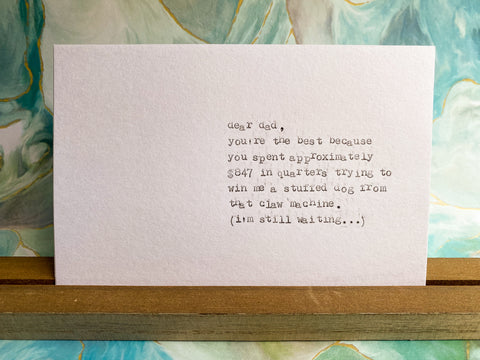 dear dad,
you're the best because
you spent approximately
$847 in quarters trying to
win me a stuffed dog from
that claw machine.
(i'm still waiting...)